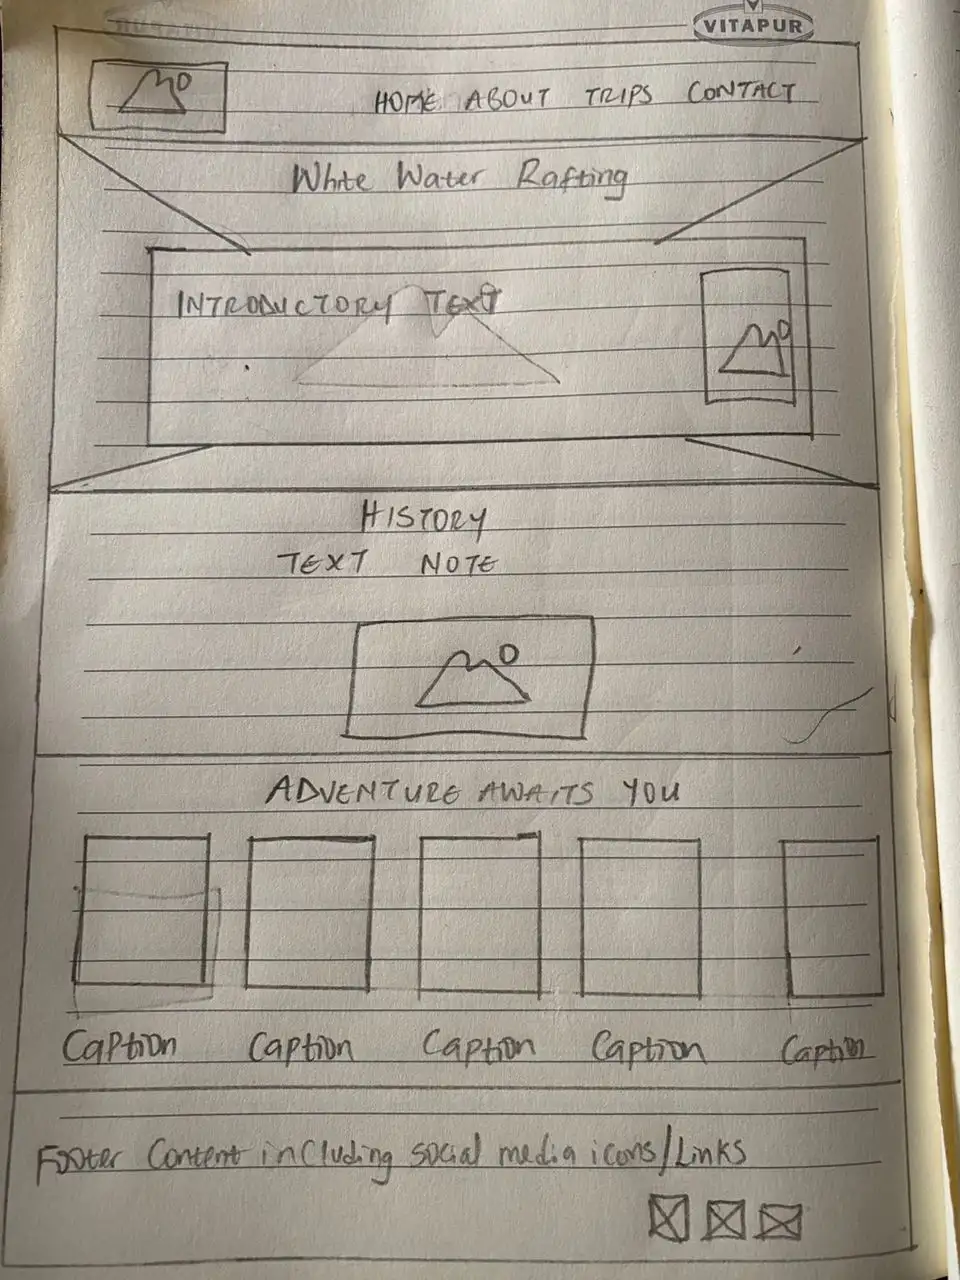 VITAPUR
HOME ABOUT TRIPS CONTACT
White Water Rafting
INTRODUCTORY TEXT
HISTORY
TEXT NOTE
ADVENTURE AWAITS YOU
Caption Caption Caption Caption Caption
Footer Content including social media icons/Links